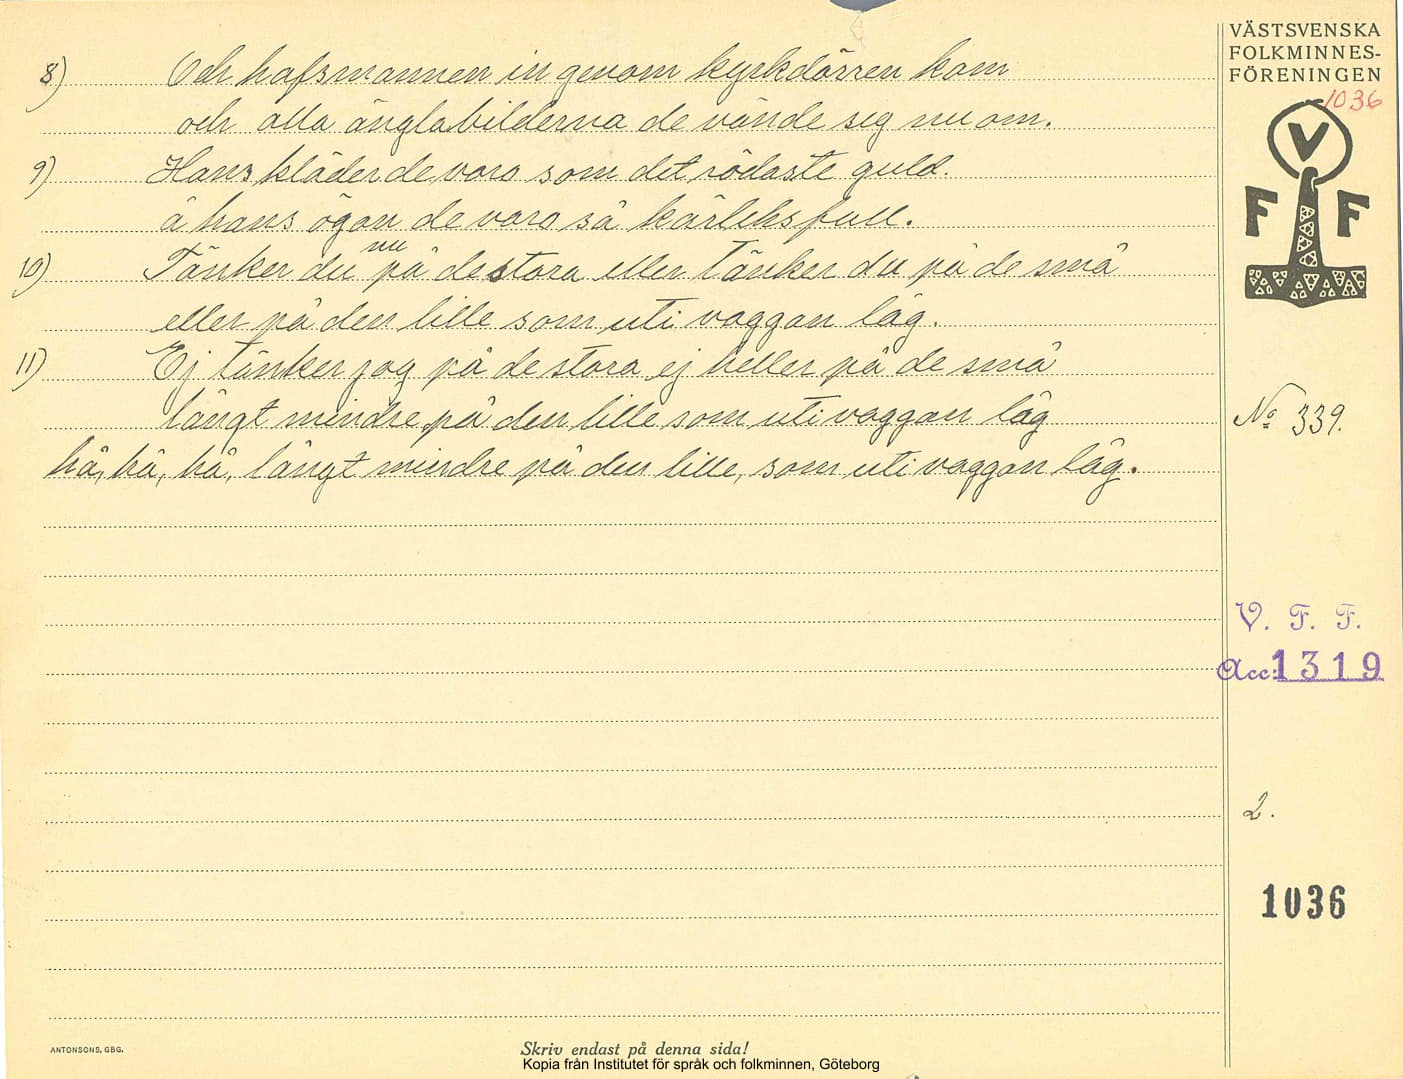 VÄSTSVENSKA
FOLKMINNES-
FÖRENINGEN
1036
V
F F
8) Och hafsmannen in genom kyrkdörren kom
och alla änglabilderna de vände sig nu om.
9) Hans kläder de voro som det rödaste guld.
å hans ögon de voro så kärleksfull.
10) Tänker du nu på de stora eller tänker du på de små
eller på den lille som uti vaggan låg.
11) Ej tänker jag på de stora ej heller på de små
långt mindre på den lille som uti vaggan låg
hå, hå, hå, långt mindre på den lille, som uti vaggan låg.
No 339.
V. F. F.
Acc: 1319
2.
1036
ANTONSONS, GBG.
Skriv endast på denna sida!
Kopia från Institutet för språk och folkminnen, Göteborg